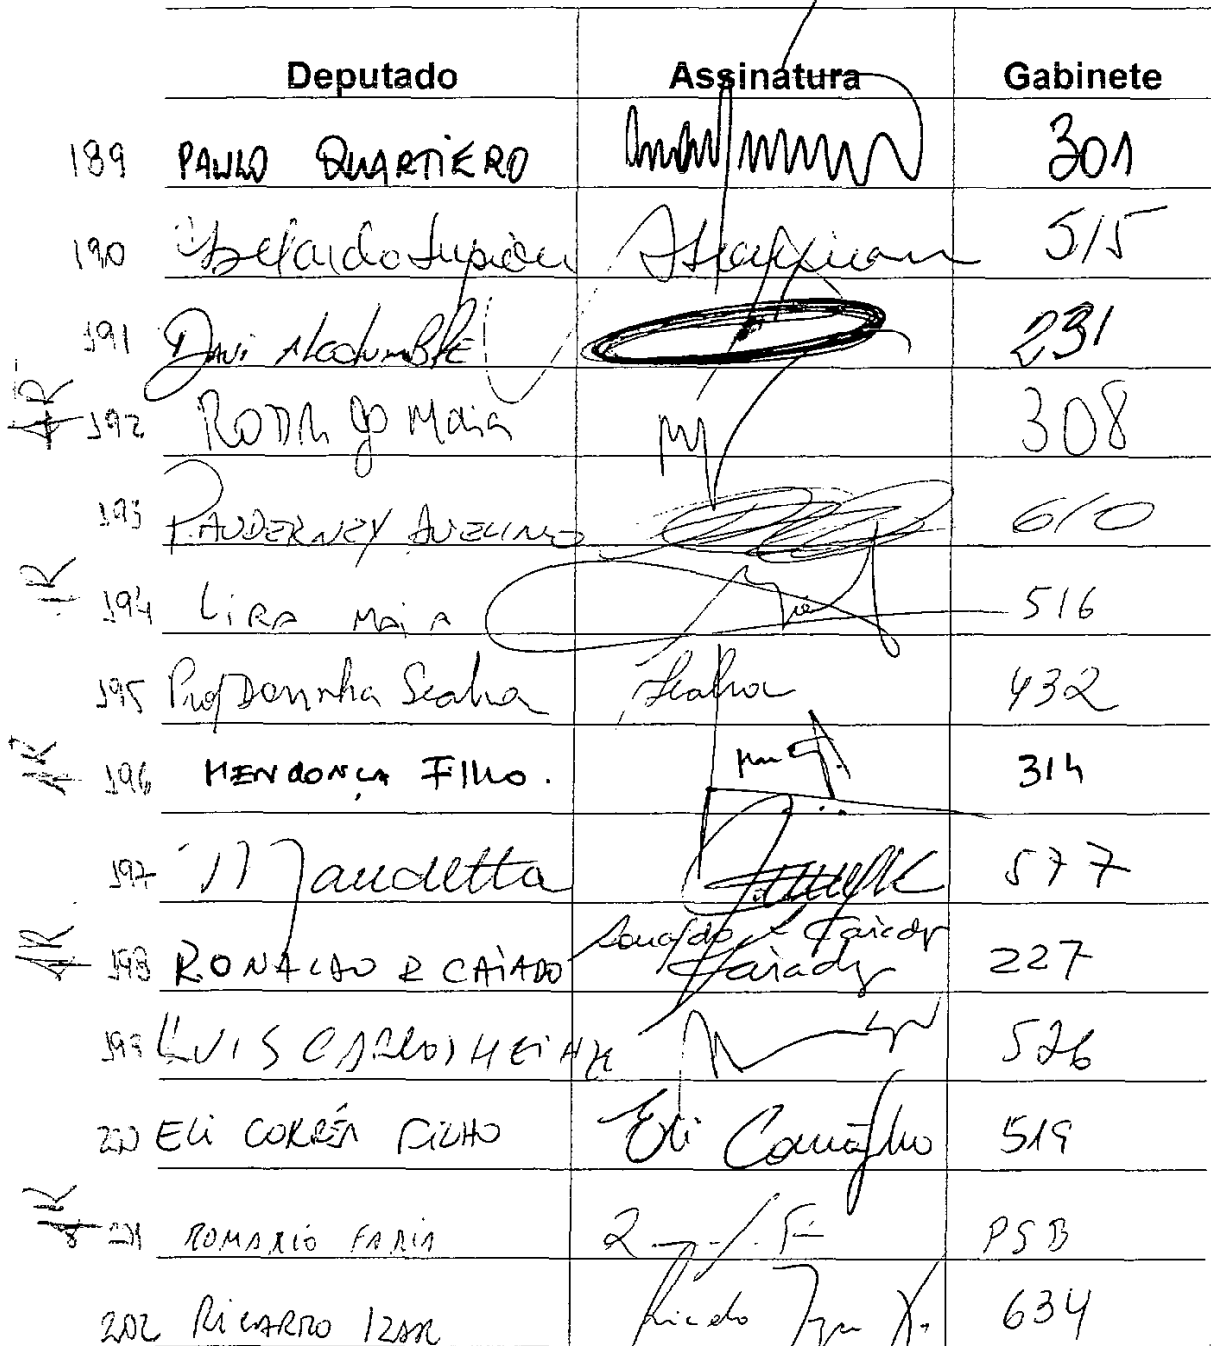 Deputado Assinatura Gabinete
189 PAULO QUARTIERO 301
190 Abelardo Lupion 515
191 Davi Alcolumbre 231
192 RODRIGO Maia 308
193 PAUDERNEY AVELINO 610
194 LIRA MAIA 516
195 Prof Dorinha Seabra Seabra 432
196 MENDONÇA FILHO. 314
197 Mandetta 577
198 RONALDO R CAIADO Ronaldo Caiado 227
199 LUIS CARLOS HEINZE 526
200 ELI CORRÊA FILHO Eli Corrêa Filho 519
201 ROMARIO FARIA PSB
202 RICARDO IZAR Ricardo Izar Jr. 634